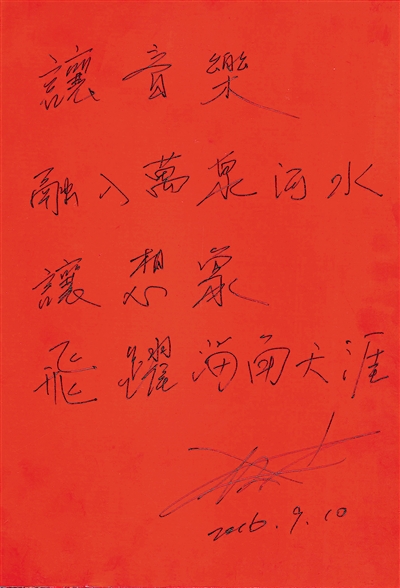 讓音樂
融入萬泉河水
讓想象
飛躍海南天涯
2016.9.10